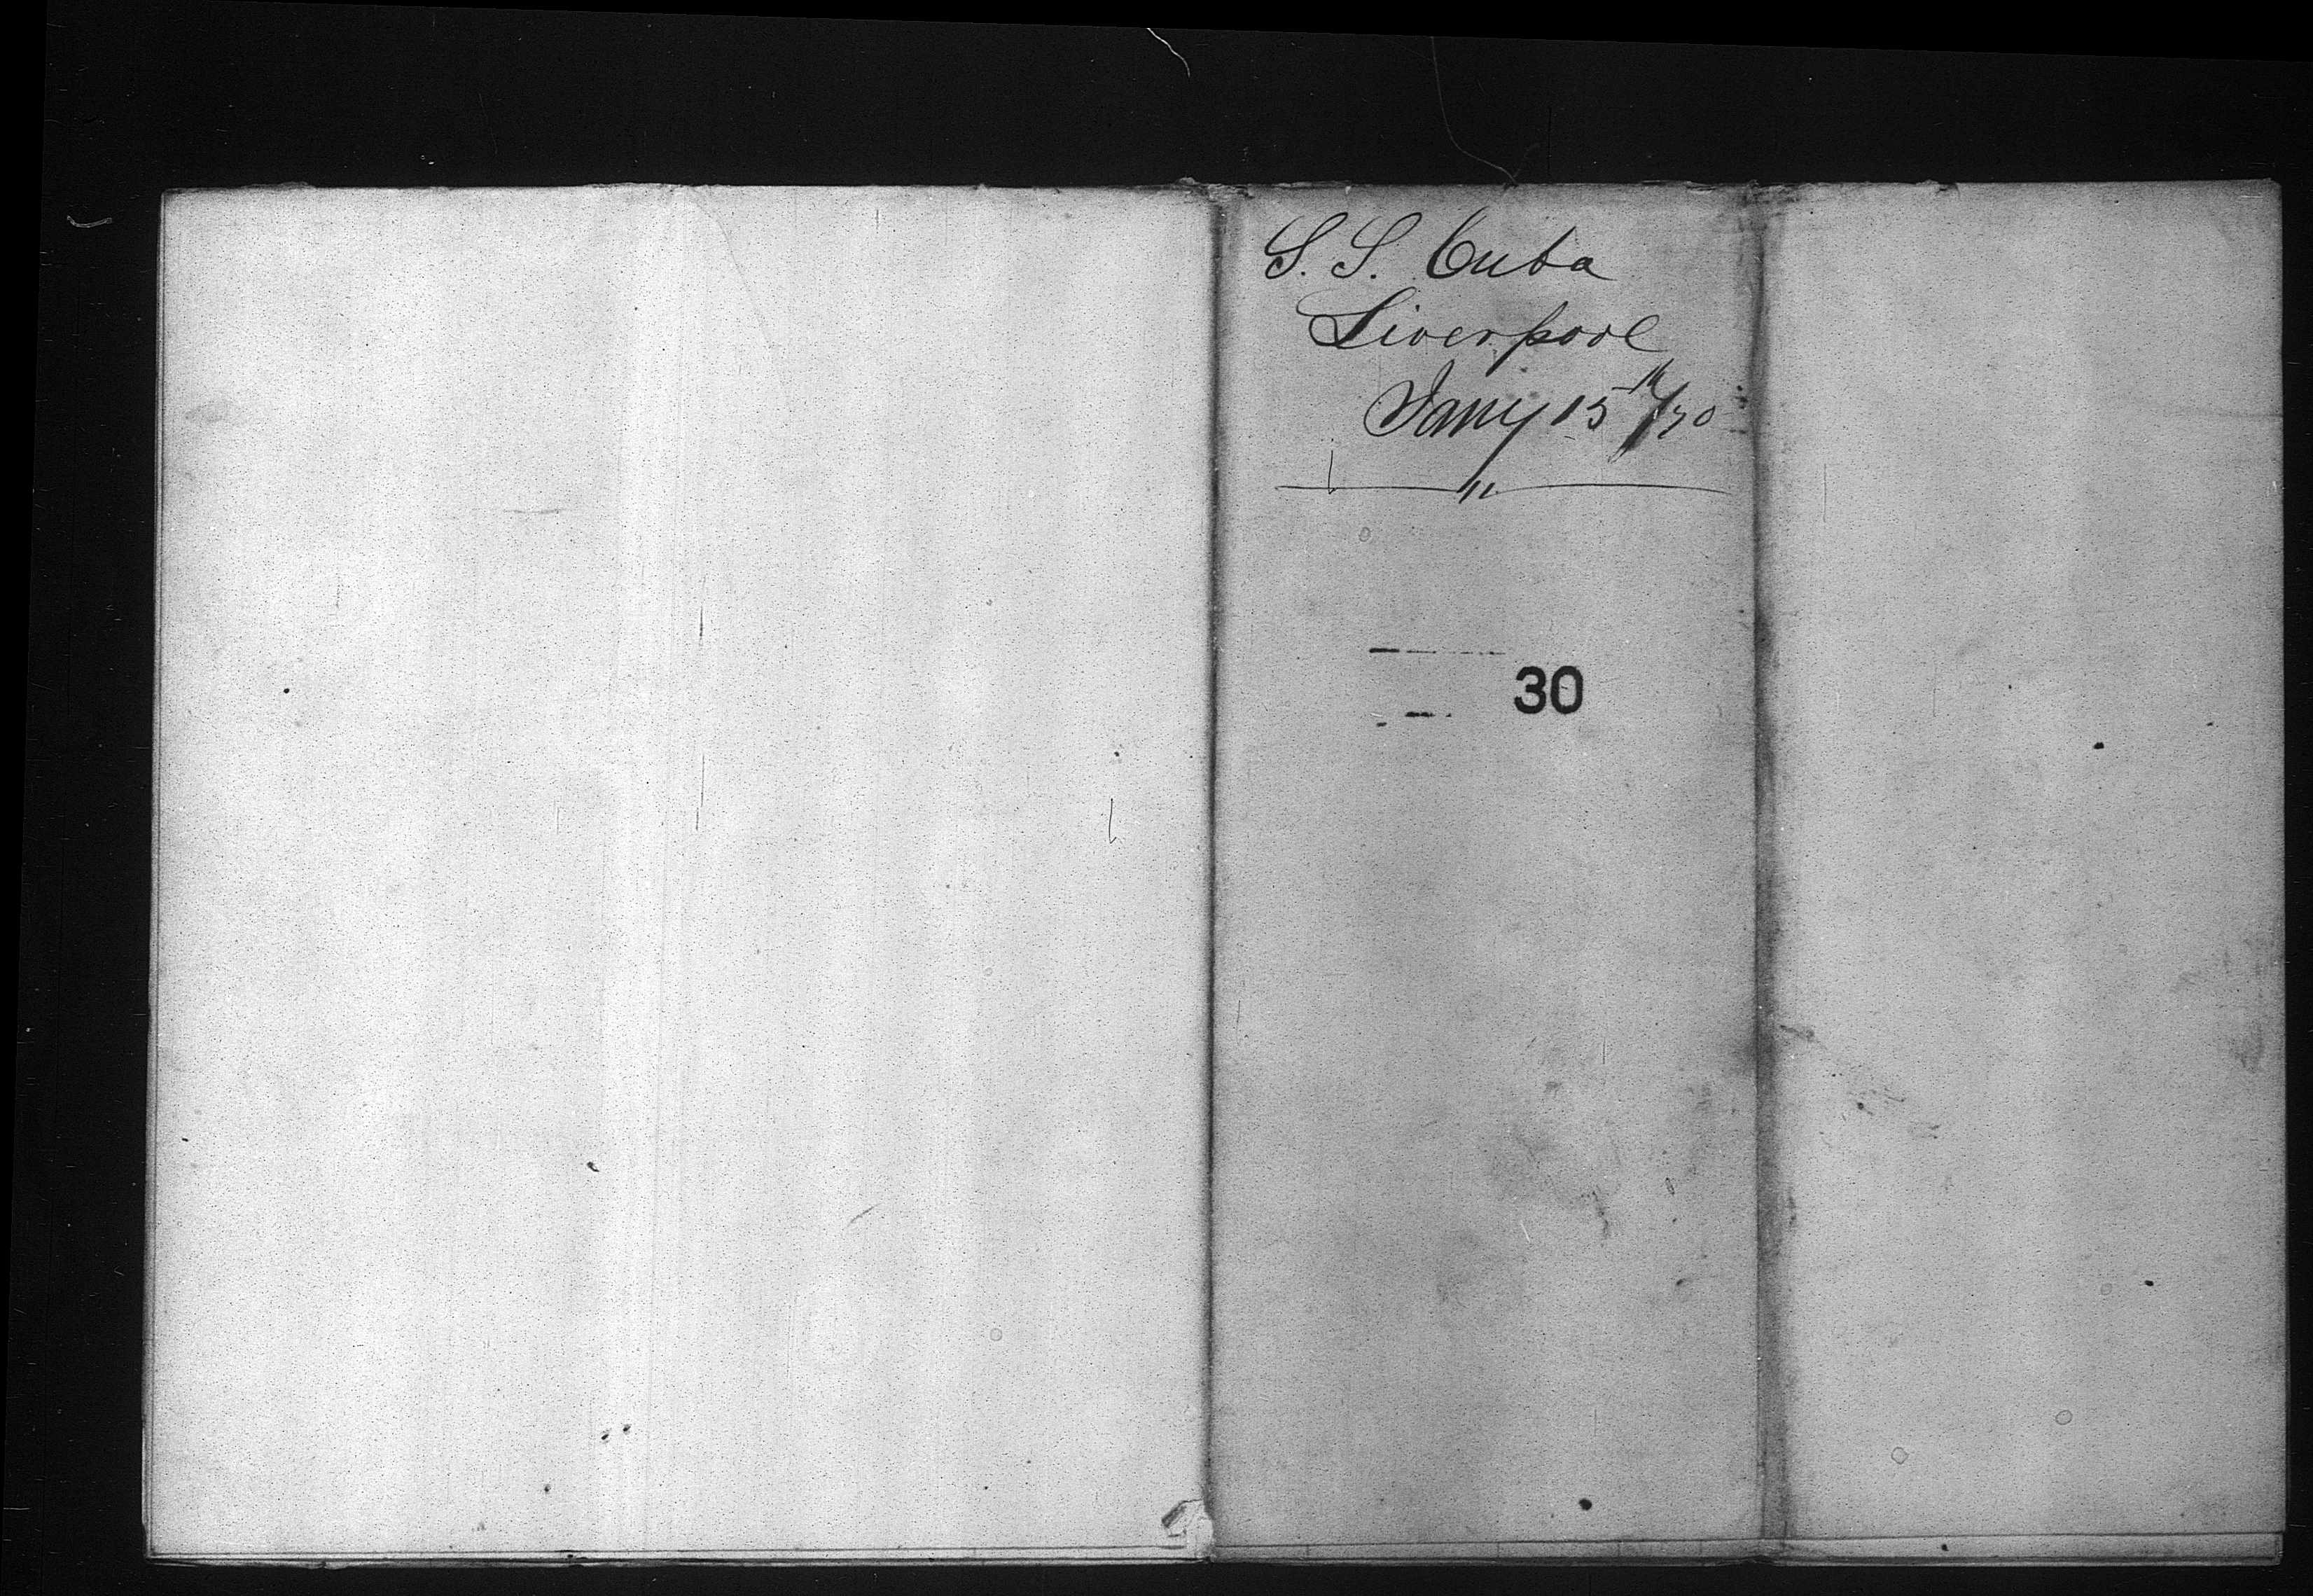 S. S. Cuba
Liverpool
Jany 15th/70
30